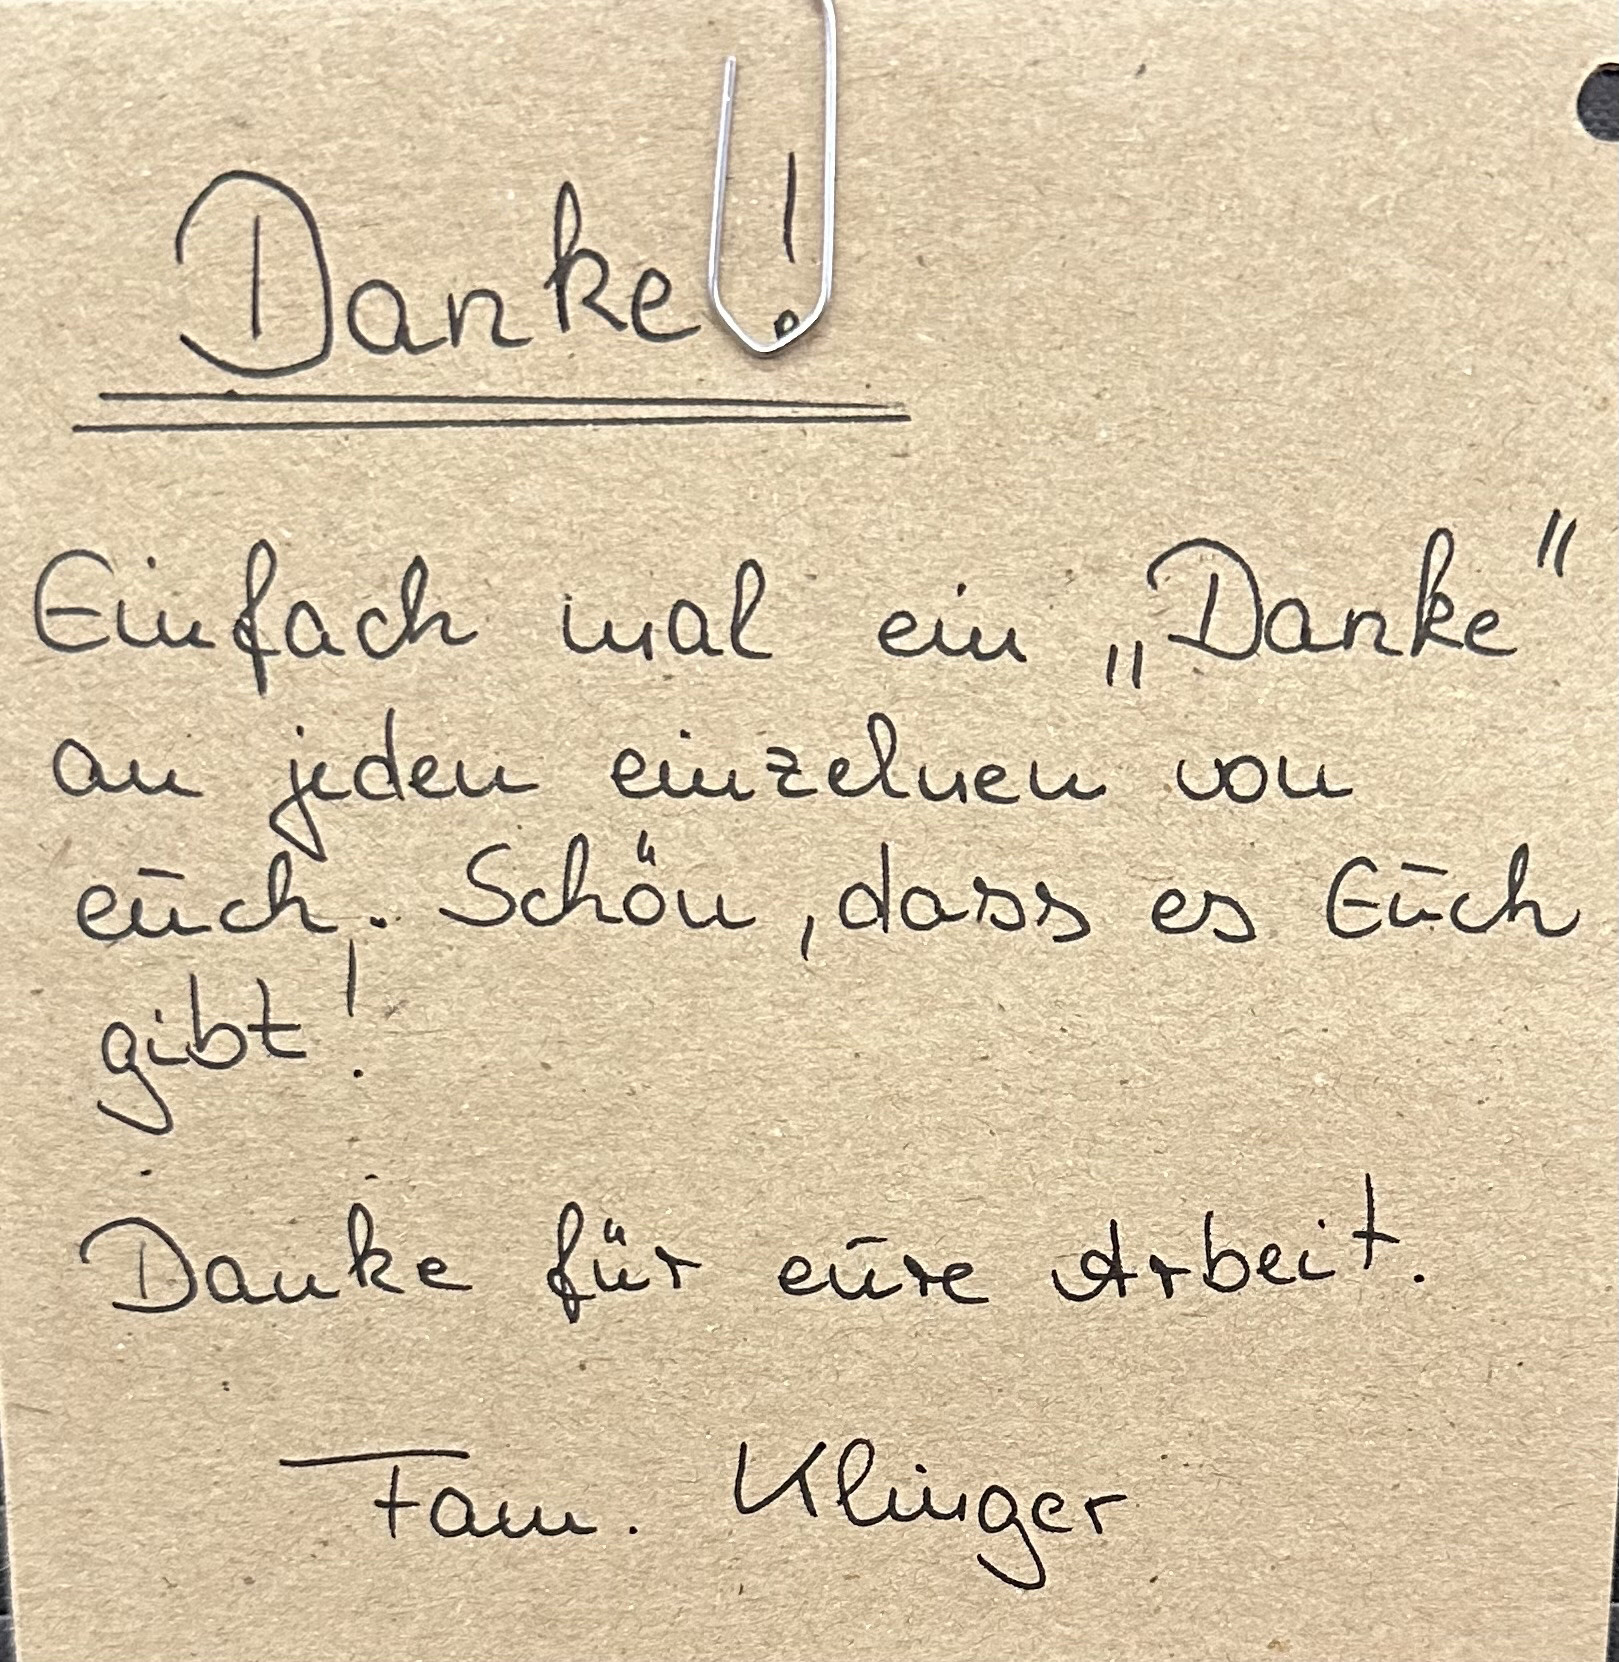 Danke!
Einfach mal ein „Danke"
an jeden einzelnen von
euch. Schön, dass es Euch
gibt!
Danke für eure Arbeit.
Fam. Klinger